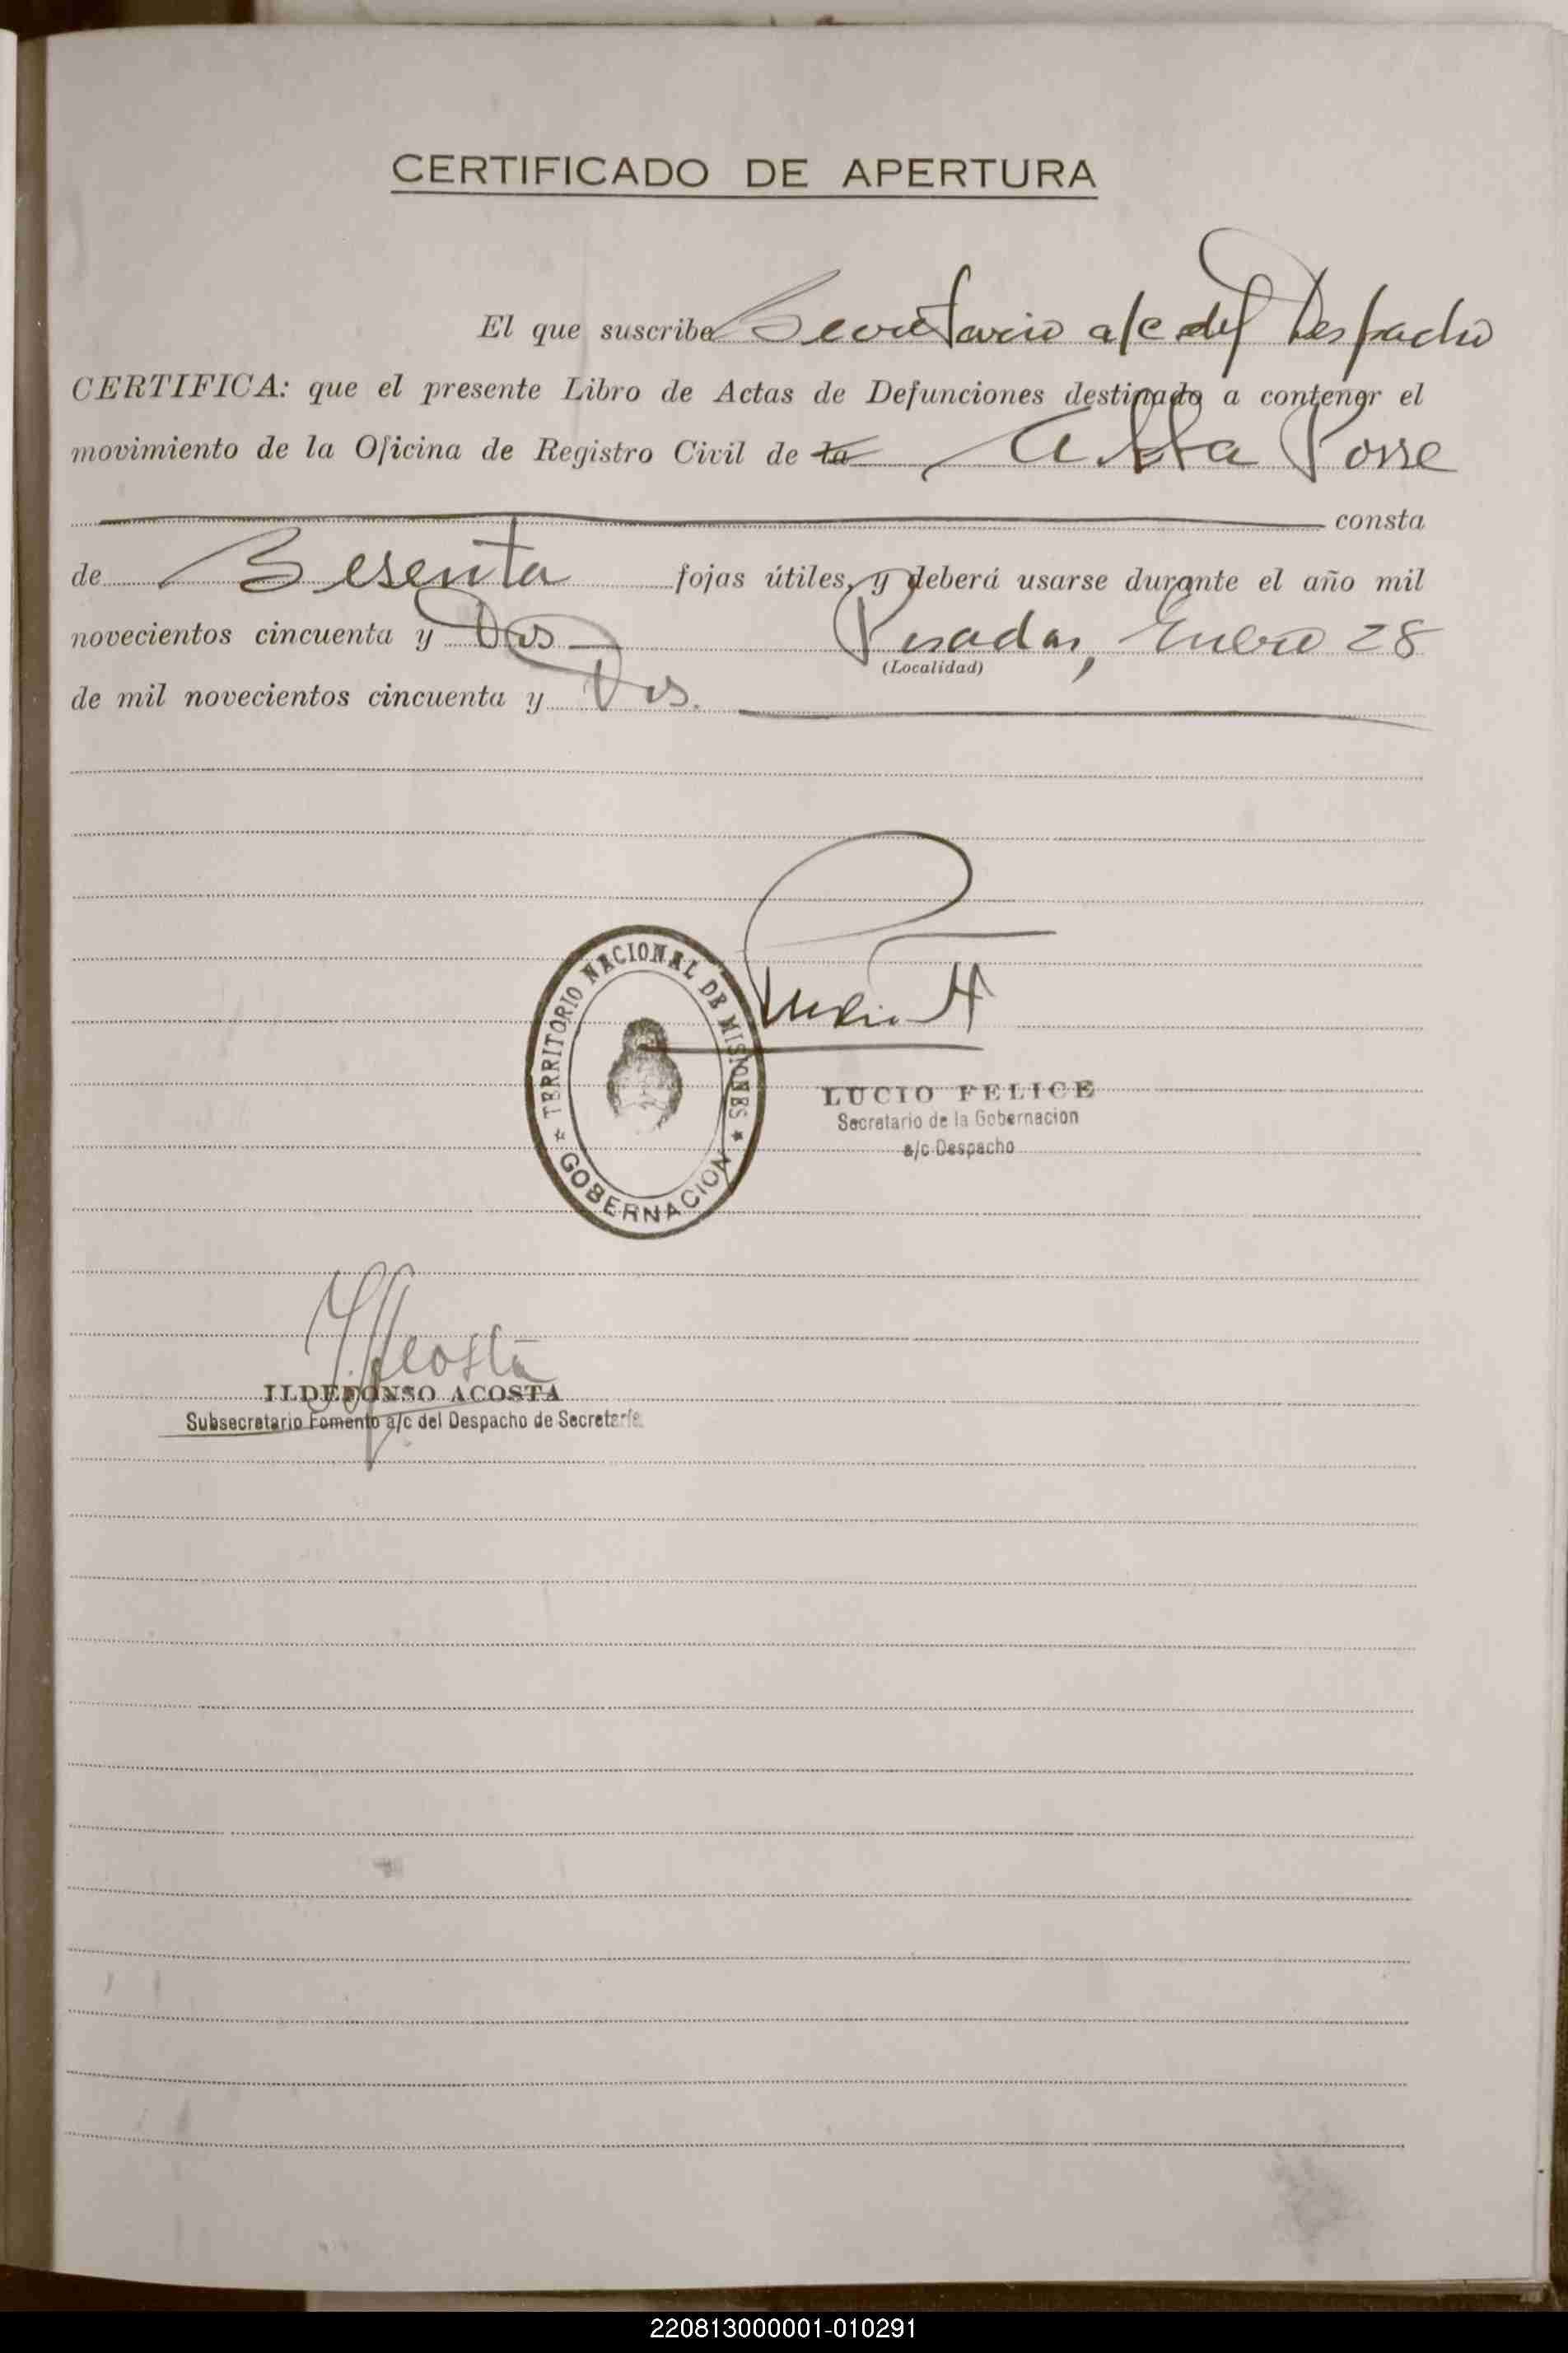 CERTIFICADO DE APERTURA
El que suscribe Secretario a/c del Despacho
CERTIFICA: que el presente Libro de Actas de Defunciones destinado a contener el
movimiento de la Oficina de Registro Civil de la Alba Posse
consta
de Sesenta fojas útiles, y deberá usarse durante el año mil
novecientos cincuenta y Dos Posadas, Enero 28
(Localidad)
de mil novecientos cincuenta y Dos.
TERRITORIO NACIONAL DE MISIONES
GOBERNACION
LUCIO FELICE
Secretario de la Gobernacion
a/c Despacho
IAcosta
ILDEFONSO ACOSTA
Subsecretario Fomento a/c del Despacho de Secretaría
220813000001-010291